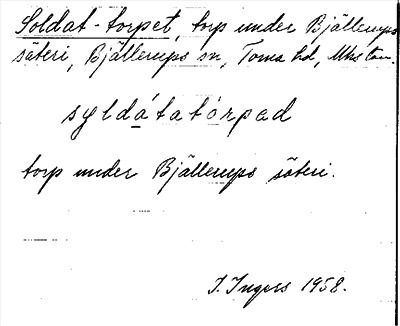 Soldat-torpet, torp under Bjällerups
säteri, Bjällerups sn, Torna hd, Mhs län.
syldátatórpad
torp under Bjällerups säteri.
I. Ingers 1958.